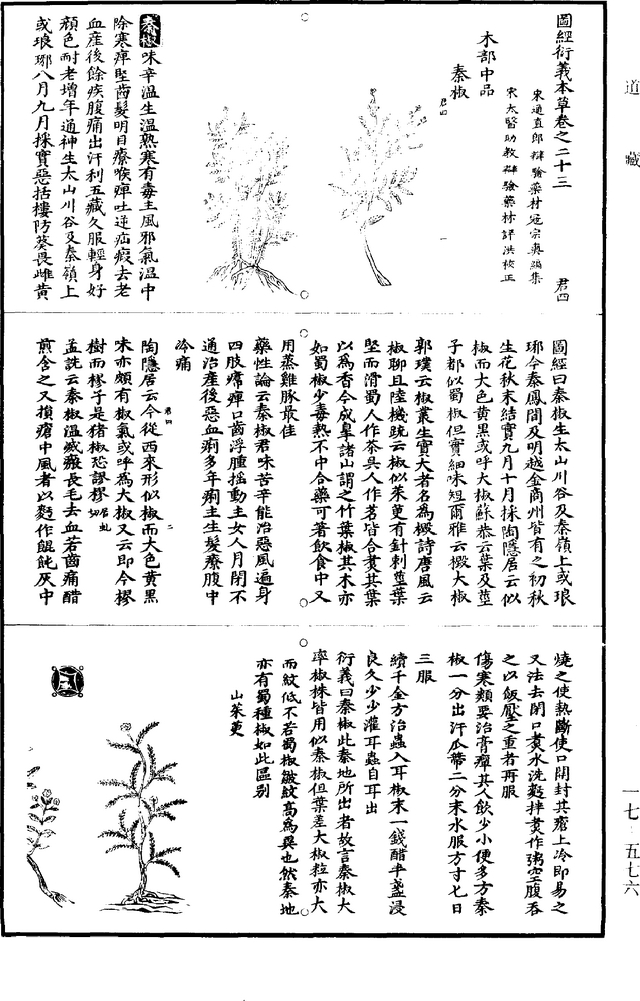 道藏
圖經衍義本草卷之二十三
君四
宋通直郎辯驗藥材寇宗奭編集
宋太醫助教辯驗藥材許洪校正
木部中品
秦椒
君四
一
秦椒味辛温生温熟寒有毒主風邪氣温中
除寒痺堅齒髮明目療喉痺吐逆疝瘕去老
血産後餘疾腹痛出汗利五藏久服輕身好
顔色耐老增年通神生太山川谷及秦嶺上
或琅琊八月九月採實惡栝樓防葵畏雌黄
圖經曰秦椒生太山川谷及秦嶺上或琅
琊今秦鳳間及明越金商州皆有之初秋
生花秋末結實九月十月採陶隱居云似
椒而大色黄黑或呼大椒蘇恭云葉及莖
子都似蜀椒但實細味短爾雅云檓大椒
郭璞云椒叢生實大者名爲檓詩唐風云
椒聊且陸機䟽云椒似茱萸有針刺莖葉
堅而滑蜀人作茶吳人作茗皆合煑其葉
以爲香今成臯諸山謂之竹葉椒其木亦
如蜀椒少毒熱不中合藥可著飲食中又
用蒸雞豚最佳
藥性論云秦椒君味苦辛能治惡風遍身
四肢𤸷痺口齒浮腫摇動主女人月閉不
通治産後惡血痢多年痢主生髮療腹中
冷痛
君四
二
陶隱居云今從西來形似椒而大色黄黑
味亦頗有椒氣或呼爲大椒又云即今樛
樹而樛子是猪椒恐謬樛居虬切
孟詵云秦椒温滅瘢長毛去血若齒痛醋
煎含之又損瘡中風者以麪作餛飩灰中
燒之使熱斷使口開封其瘡上冷即易之
又法去閉口煑水洗麪拌煑作粥空腹吞
之以飯壓之重者再服
傷寒類要治膏癉其人飲少小便多方秦
椒一分出汗瓜蔕二分末水服方寸匕日
三服
續千金方治蟲入耳椒末一錢醋半盞浸
良久少少灌耳蟲自耳出
衍義曰秦椒此秦地所出者故言秦椒大
率椒株皆用似秦椒但葉差大椒粒亦大
而紋低不若蜀椒皺紋高爲異也然秦地
亦有蜀種椒如此區別
山茱萸
三
一七·五七六